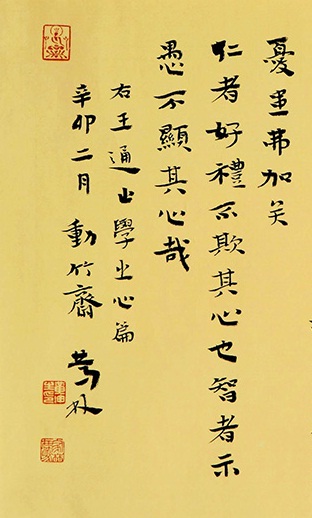 憂患弗加矣
仁者好禮不欺其心也智者示
愚不顯其心哉
右王通止學止心篇
辛卯二月動竹齋